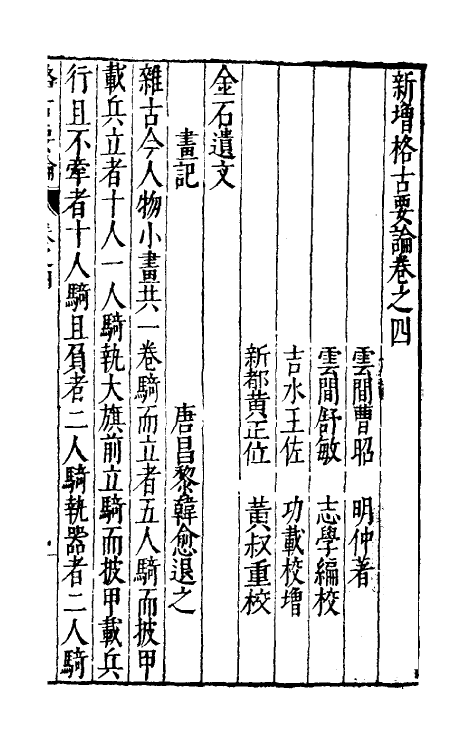 新增格古要論卷之四
雲間曹昭　明仲著
雲間舒敏　志學編校
吉水王佐　功載校增
新都黃正位　黃叔重校
金石遺文
畫記　唐昌黎韓愈退之
雜古今人物小畫共一卷騎而立者五人騎而披甲
載兵立者十人一人騎執大旗前立騎而披甲載兵
行且下牽者十人騎且負者二人騎執器者二人騎
格古要論　卷之四